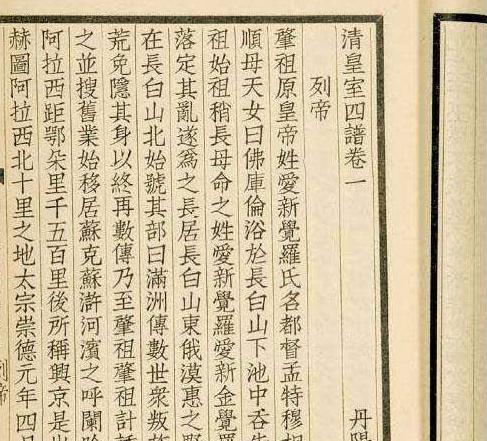 清皇室四譜卷一
列帝
丹陽
肇祖原皇帝姓愛新覺羅氏名都督孟特穆
順母天女曰佛庫倫浴於長白山下池中吞朱
祖始祖稍長母命之姓愛新覺羅愛新金覺羅
落定其亂遂爲之長居長白山東俄漠惠之野
在長白山北始號其部曰滿洲傳數世衆叛
荒免隱其身以終再數傳乃至肇祖肇祖計誘
之並搜舊業始移居蘇克蘇滸河濱之呼闌哈
阿拉西距鄂朵里千五百里後所稱興京是
赫圖阿拉西北十里之地太宗崇德元年四月
列帝